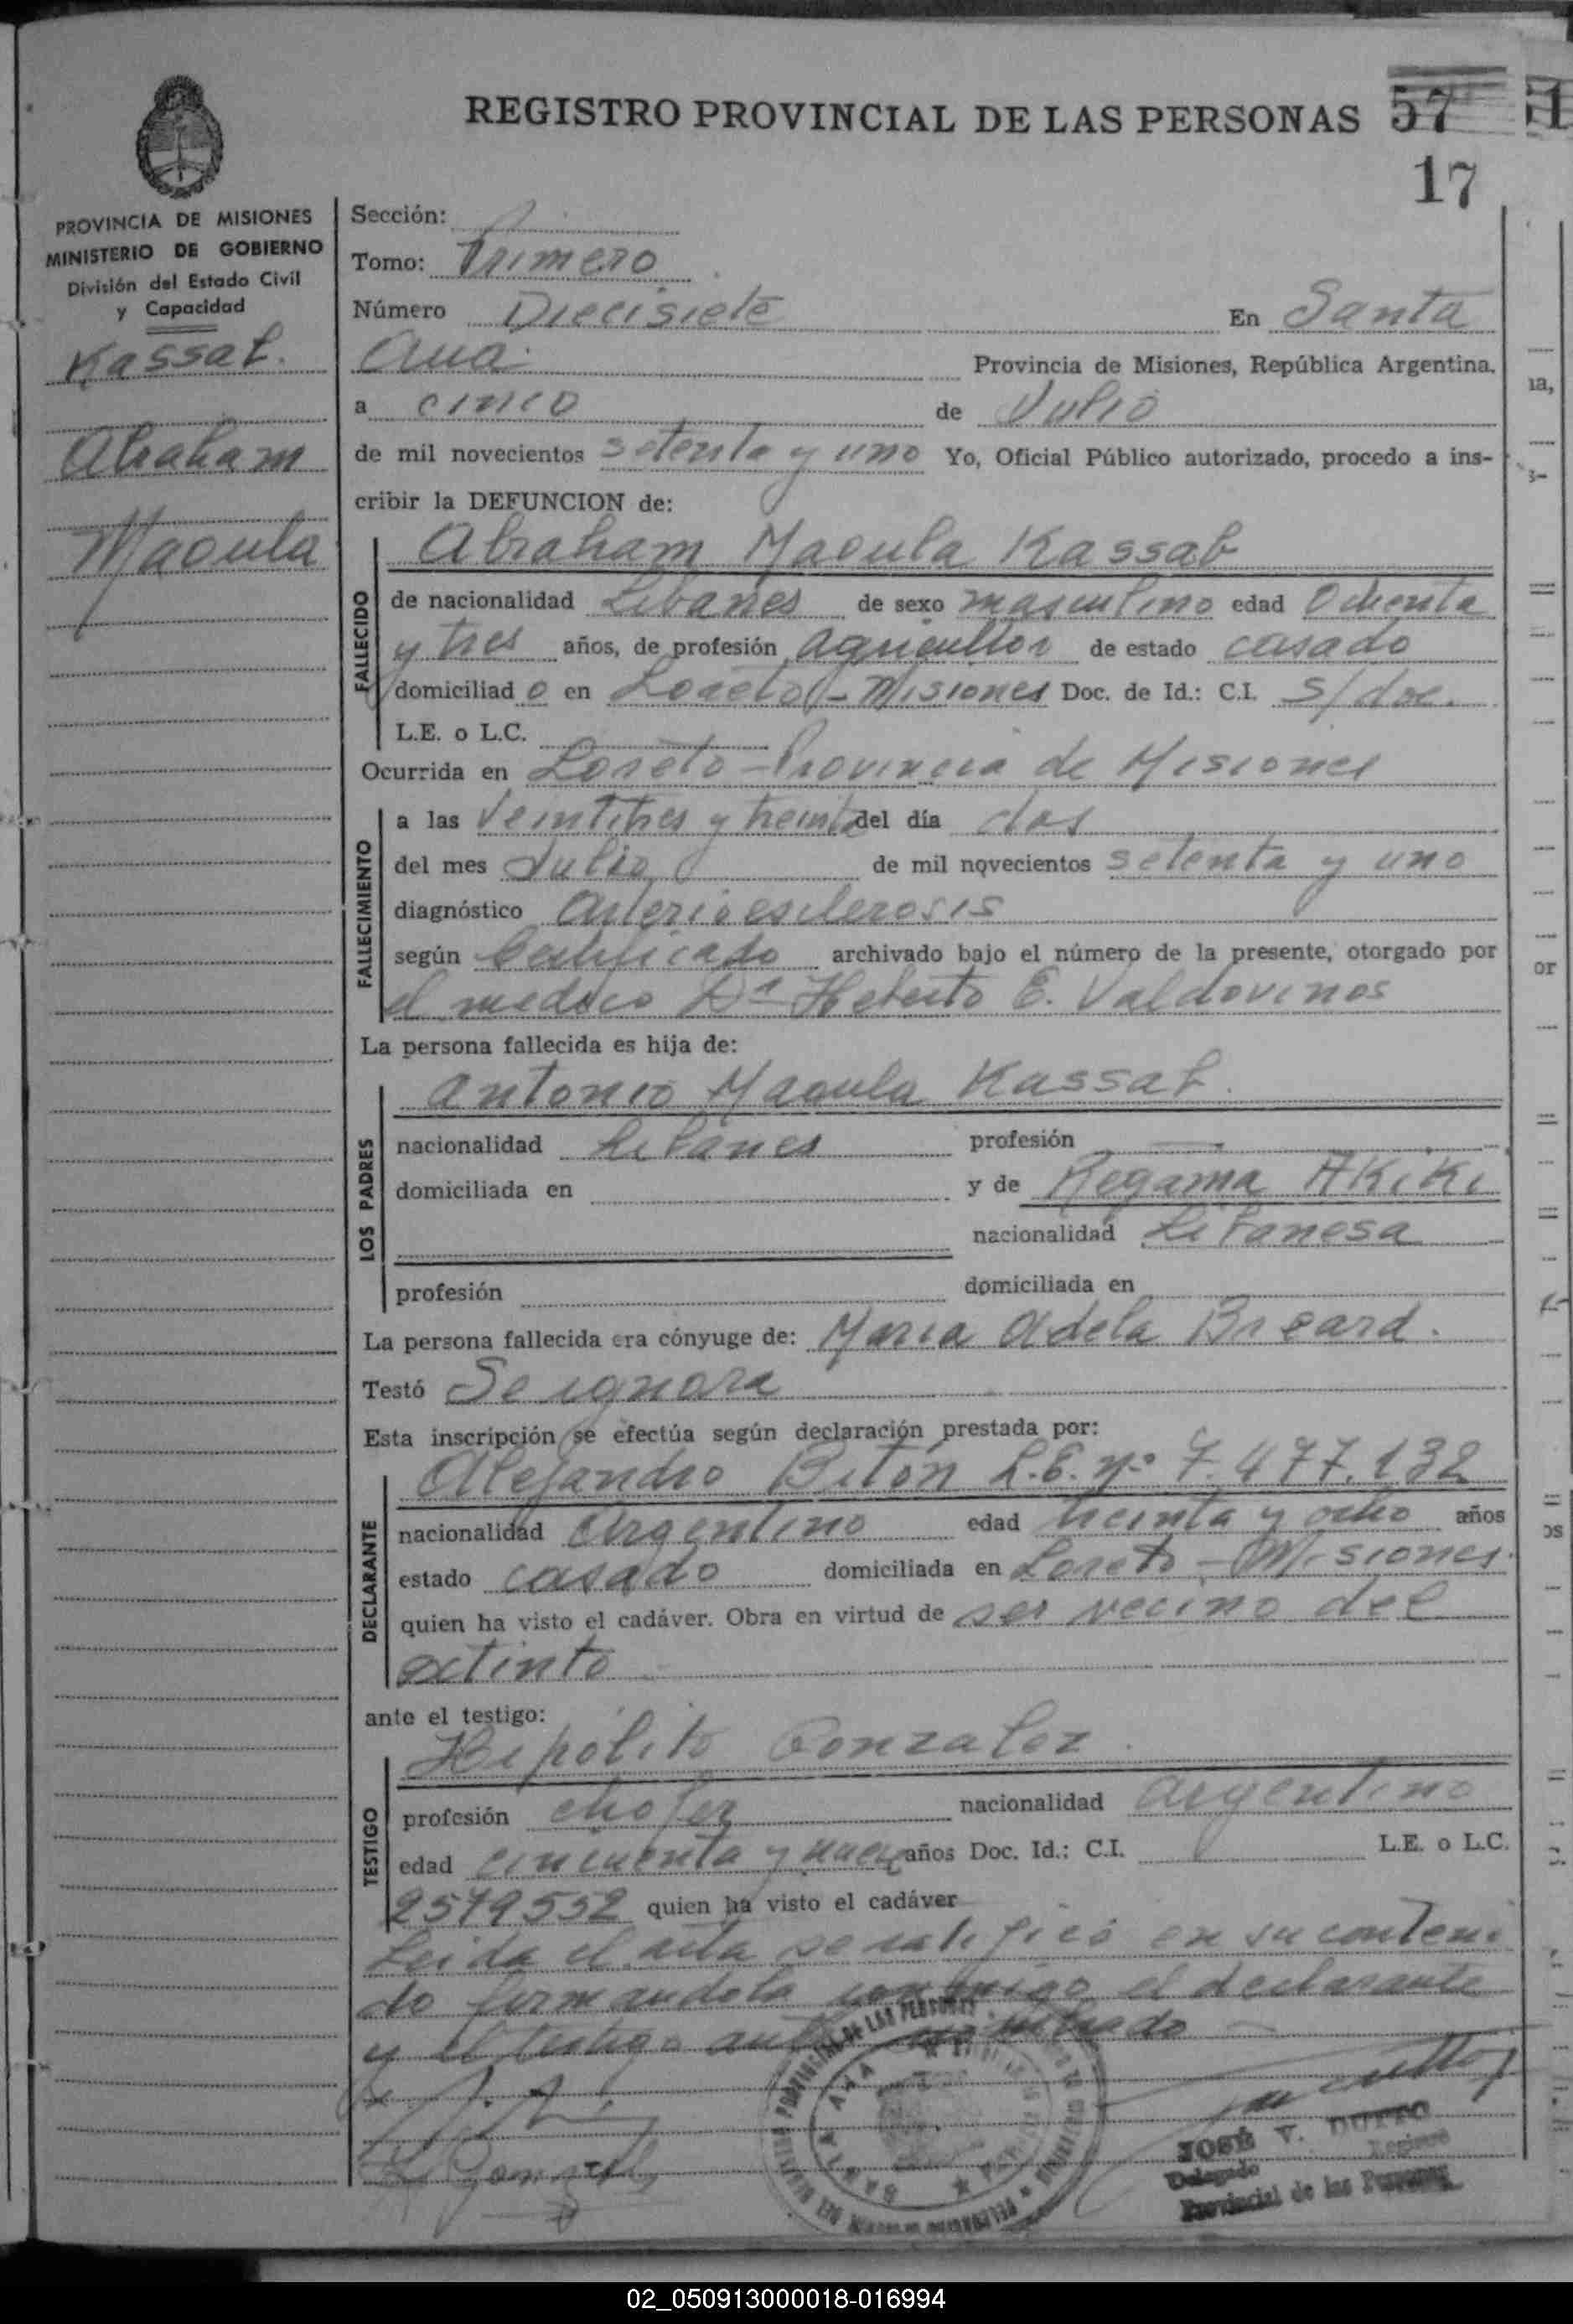 REGISTRO PROVINCIAL DE LAS PERSONAS 57
17
PROVINCIA DE MISIONES
MINISTERIO DE GOBIERNO
División del Estado Civil
y Capacidad
Kassab.
Abraham
Maoula
Sección:
Tomo: Primero
Número Diecisiete En Santa
Ana. Provincia de Misiones, República Argentina.
a cinco de Julio
de mil novecientos setenta y uno Yo, Oficial Público autorizado, procedo a ins-
cribir la DEFUNCION de:
Abraham Maoula Kassab
FALLECIDO
de nacionalidad Libanes de sexo masculino edad Ochenta
y tres años, de profesión agricultor de estado casado
domiciliad o en Loreto - Misiones Doc. de Id.: C.I. S/doc.
L.E. o L.C.
Ocurrida en Loreto - Provincia de Misiones
FALLECIMIENTO
a las Veintitres y treinta del día dos
del mes Julio de mil novecientos setenta y uno
diagnóstico Arterioesclerosis
según Certificado archivado bajo el número de la presente, otorgado por
el medico Dr Heberto E. Valdovinos
La persona fallecida es hija de:
LOS PADRES
Antonio Maoula Kassab.
nacionalidad Libanes profesión —
domiciliada en y de Regama Akiki
nacionalidad Libanesa
profesión domiciliada en
La persona fallecida era cónyuge de: Maria Adela Breard.
Testó Se ignora
Esta inscripción se efectúa según declaración prestada por:
DECLARANTE
Alejandro Biton L.E. Nº 7.477.132
nacionalidad Argentino edad treinta y ocho años
estado casado domiciliada en Loreto - Misiones.
quien ha visto el cadáver. Obra en virtud de ser vecino del
extinto
ante el testigo:
TESTIGO
Hipólito Gonzalez.
profesión chofer nacionalidad argentino
edad cincuenta y nueve años Doc. Id.: C.I. L.E. o L.C.
2579552 quien ha visto el cadáver
Leida el acta se ratificó en su conteni
do firmandola conmigo el declarante
y el testigo
JOSÉ V. DUTTO
Delegado Registro
Provincial de las Personas
02_050913000018-016994